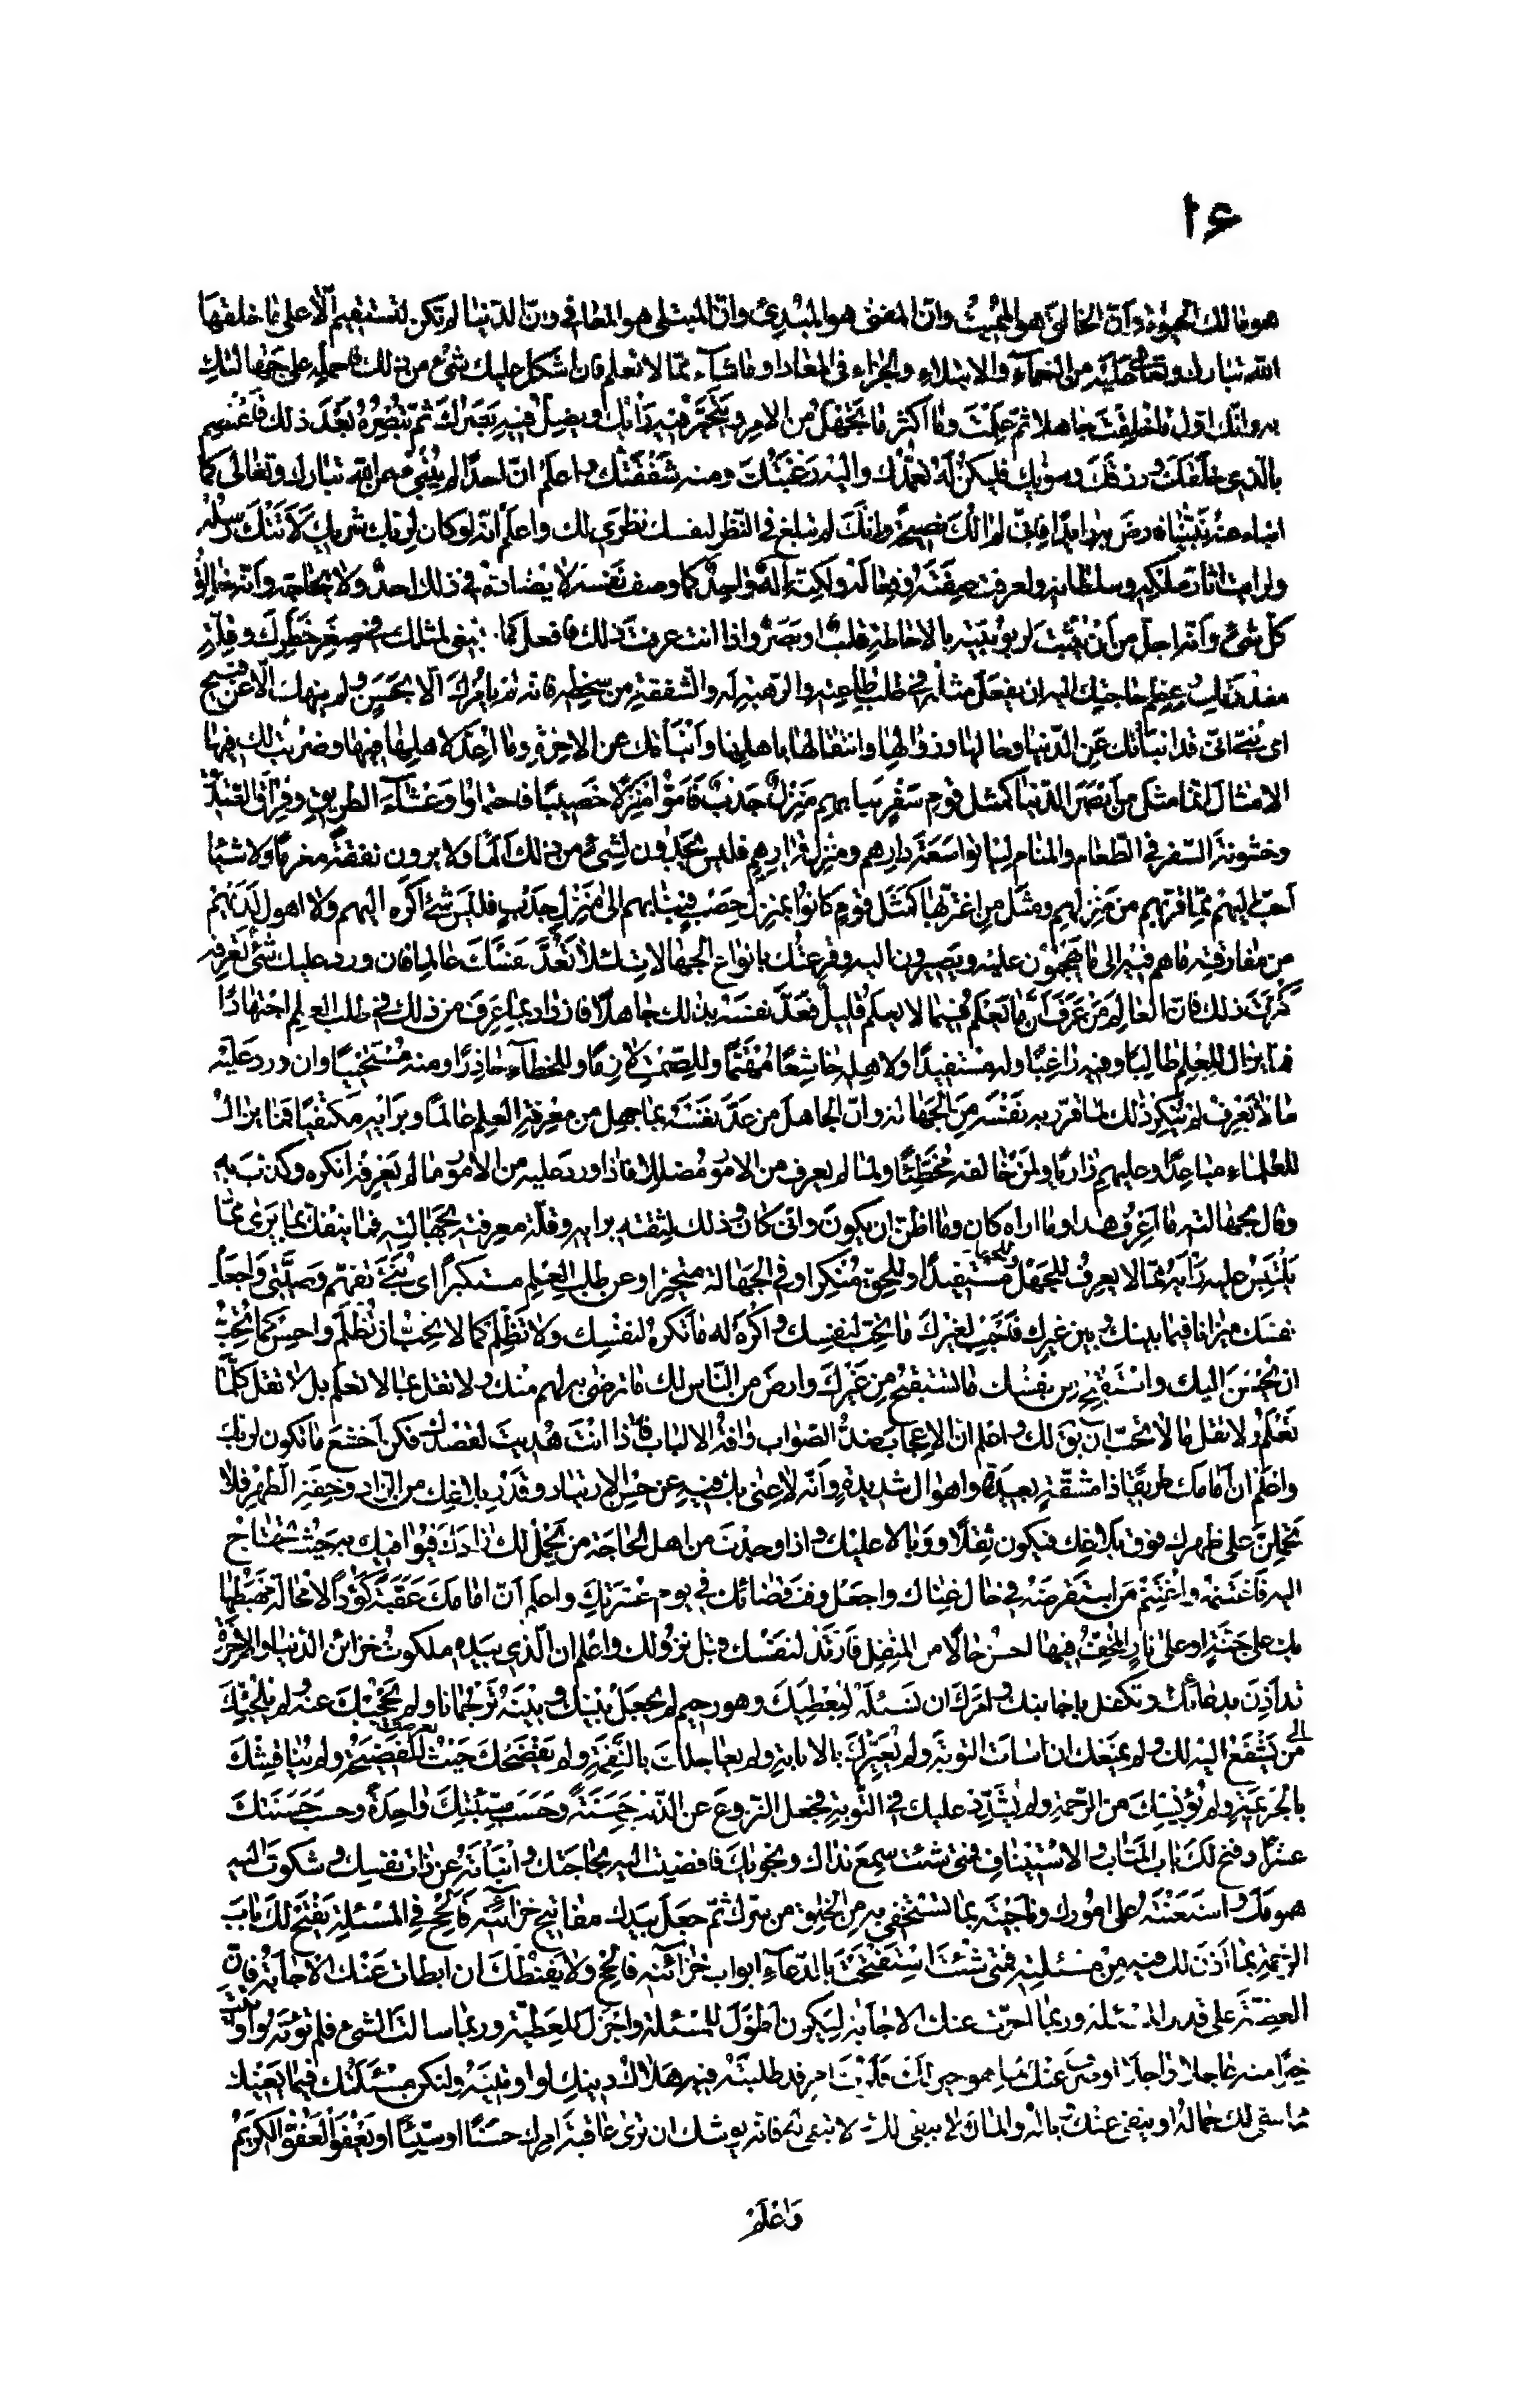 ١۶
هو مالك الحيوة وأنّ الخالق هو المميت وانّ المفنى هو المبدئ وانّ المبتلى هو المعافى وانّ الدّنيا لم تكن لتستقيم الّا على ما خلقها
الله تبارك وتعالى عليه من النعماء والابتلاء والجزاء فى المعاد او ما شاء ممّا لا نعلم فان اشكل عليك شئ من ذلك فاحمله على جهالتك
به وانّك اوّل ما خلقت جاهلا ثمّ علمت وما اكثر ما تجهل من الامر ويتحيّر فيه رأيك ويضلّ فيه بصرك ثمّ تبصره بعد ذلك فاعتصم
بالّذى خلقك ورزقك وسوّيك فليكن له تعمّدك واليه رغبتك ومنه شفقتك واعلم انّ احدا لم ينبئ عن الله تبارك وتعالى كما
انباء عنه نبيّنا فارض به رائدا فانّى لم آلك نصيحة وانّك لم تبلغ فى النّظر لنفسك نظرى لك واعلم انّه لو كان لربّك شريك لأتتك رسله
ولرايت اثار ملكه وسلطانه ولعرفت صفته وفعاله ولكنّه اله واحد كما وصف نفسه لا يضادّه فى ذلك احد ولا يحاجّه وأنّه خالق
كلّ شئ وأنّه اجلّ من أن يثبت لربوبيّته بالاحاطة قلب او بصر واذا انت عرفت ذلك فافعل كما ينبغى لمثلك فى صغر خطرك وقلّة
مقدرتك وعظم حاجتك اليه ان يفعل مثله فى طلب طاعته والرّهبة له والشّفقة من سخطه فانّه لم يأمرك الّا بحسن ولم ينهك الّا عن قبيح
اى بنىّ انّى قد انبأتك عن الدّنيا وحالها وزوالها وانتقالها باهلها وأنبأتك عن الاخرة وما اعدّ لاهلها فيها وضربت لك فيها
الامثال انّما مثل من أبصر الدّنيا كمثل قوم سفر نبا بهم منزل جدب فأمّوا منزلا خصيبا فاحتملوا وعثاء الطريق وفراق الصّديق
وخشونة السّفر فى الطّعام والمنام ليأتوا سعة دارهم ومنزل قرارهم فليس يجدون لشئ من ذلك ألما ولا يرون نفقة مغرما ولا شيئا
أحبّ اليهم ممّا قرّبهم من منزلهم ومثل من اغترّ بها كمثل قوم كانوا بمنزل خصب فنبا بهم الى منزل جدب فليس شئ اكره اليهم ولا اهول لديهم
من مفارقة ما هم فيه الى ما يهجمون عليه ويصيرون اليه وقرعتك بانواع الجهالات لئلّا تعدّ نفسك عالما فان ورد عليك شئ تعرفه
اكبرت ذلك فانّ العالم من عرف أنّ ما يعلم فيما لا يعلم قليل فعدّ نفسه بذلك جاهلا فازداد بما عرف من ذلك فى طلب العلم اجتهادا
فما يزال للعلم طالبا وفيه راغبا وله مستفيدا ولاهله خاشعا مهتمّا وللصّمت لازما وللخطاء حاذرا ومنه مستحييا وان ورد عليه
ما لا يعرف لم ينكر ذلك لما قرّر به نفسه من الجهالة وانّ الجاهل من عدّ نفسه بما جهل من معرفة العلم عالما وبرايه مكتفيا فما يزال
للعلماء مباعدا وعليهم زاريا ولمن خالفه مخطّئا ولما لم يعرف من الامور مضلّلا فاذا ورد عليه من الامور ما لم يعرفه انكره وكذب به
وقال بجهالته ما اعرف هذا وما اراه كان وما اظنّ ان يكون وانّى كان وذلك لثقته برايه وقلّة معرفته بجهالته فما ينفكّ بما يرى ممّا
يلتبس عليه رأيه ممّا لا يعرف للجهل مستفيدا وللحقّ منكرا وفى الجهالة متحيّرا وعن طلب العلم مستكبرا اى بنىّ تفهّم وصيّتى واجعل
نفسك ميزانا فيما بينك وبين غيرك فتحبّ لغيرك ما تحبّ لنفسك واكره له ما تكره لنفسك ولا تظلم كما لا تحبّ ان تظلم واحسن كما تحبّ
ان يحسن اليك واستقبح من نفسك ما تستقبح من غيرك وارض من النّاس لك ما ترضى به لهم منك ولا تقل بما لا تعلم بل لا تقل كلّما
تعلم ولا تقل ما لا تحبّ ان يقال لك واعلم انّ الاعجاب ضدّ الصّواب وافة الالباب فاذا انت هديت لقصدك فكن أخشع ما تكون لربّك
واعلم انّ أمامك طريقا ذا مشقّة بعيدة واهوال شديدة وأنّه لا غنى بك فيه عن حسن الارتياد وقدّر بلاغك من الزاد وخفّة الظهر فلا
تحملنّ على ظهرك فوق بلاغك فيكون ثقلا ووبالا عليك واذا وجدت من اهل الحاجة من يحمل لك زادك فيوافيك به حيث تحتاج
اليه فاغتنمه واغتنم من استقرضك فى حال غناك واجعل وقت قضائك فى يوم عسرتك واعلم انّ امامك عقبة كؤدا لا محالة مهبطها
بك على جنّة او على نار المخفّ فيها احسن حالا من المثقل فارتد لنفسك قبل نزولك واعلم ان الّذى بيده ملكوت خزائن الدّنيا والاخرة
قد اذن بدعائك وتكفّل باجابتك وامرك ان تسئله ليعطيك وهو رحيم لم يجعل بينك وبينه ترجمانا ولم يحجبك عنه ولم يلجئك
الى من يشفع اليه لك ولم يمنعك ان اسأت التوبة ولم يعيّرك بالانابة ولم يعاجلك بالنّقمة ولم يفضحك حيث تعرضت للفضيحة ولم يناقشك
بالجريمة ولم يؤيسك من الرّحمة ولم يشدّد عليك فى التّوبة فجعل النزوع عن الذّنب حسنة وحسب سيّئتك واحدة وحسب حسنتك
عشرا وفتح لك باب المتاب والاستيناف فمتى شئت سمع نداك ونجويك فافضيت اليه بحاجتك وأنبأته عن ذات نفسك وشكوت اليه
همومك واستعنته على امورك وناجيته بما تستخفى به من الخلق من سرّك ثمّ جعل بيدك مفاتيح خزائنه فألحّ فى المسئلة يفتح لك باب
الرحمة بما أذن لك فيه من مسئلته فمتى شئت استفتحت بالدّعاء ابواب خزائنه فألحّ ولا يقنطك ان ابطات عنك الاجابة فانّ
العطيّة على قدر المسئلة وربما اخّرت عنك الاجابة ليكون أطول للمسئلة واجزل للعطيّة وربما سالت الشئ فلم تؤته واوتيت
خيرا منه عاجلا واجلا او صرف عنك لما هو خير لك فلربّ امر قد طلبته فيه هلاك دينك لو اوتيته ولتكن مسئلتك فيما يعنيك
ممّا يبقى لك جماله او ينفى عنك وباله والمال لا يبقى لك ولا تبقى له فانّه يوشك ان ترى عاقبة امرك حسنا او سيّئا او يعفو العفوّ الكريم
وَاعْلَمْ